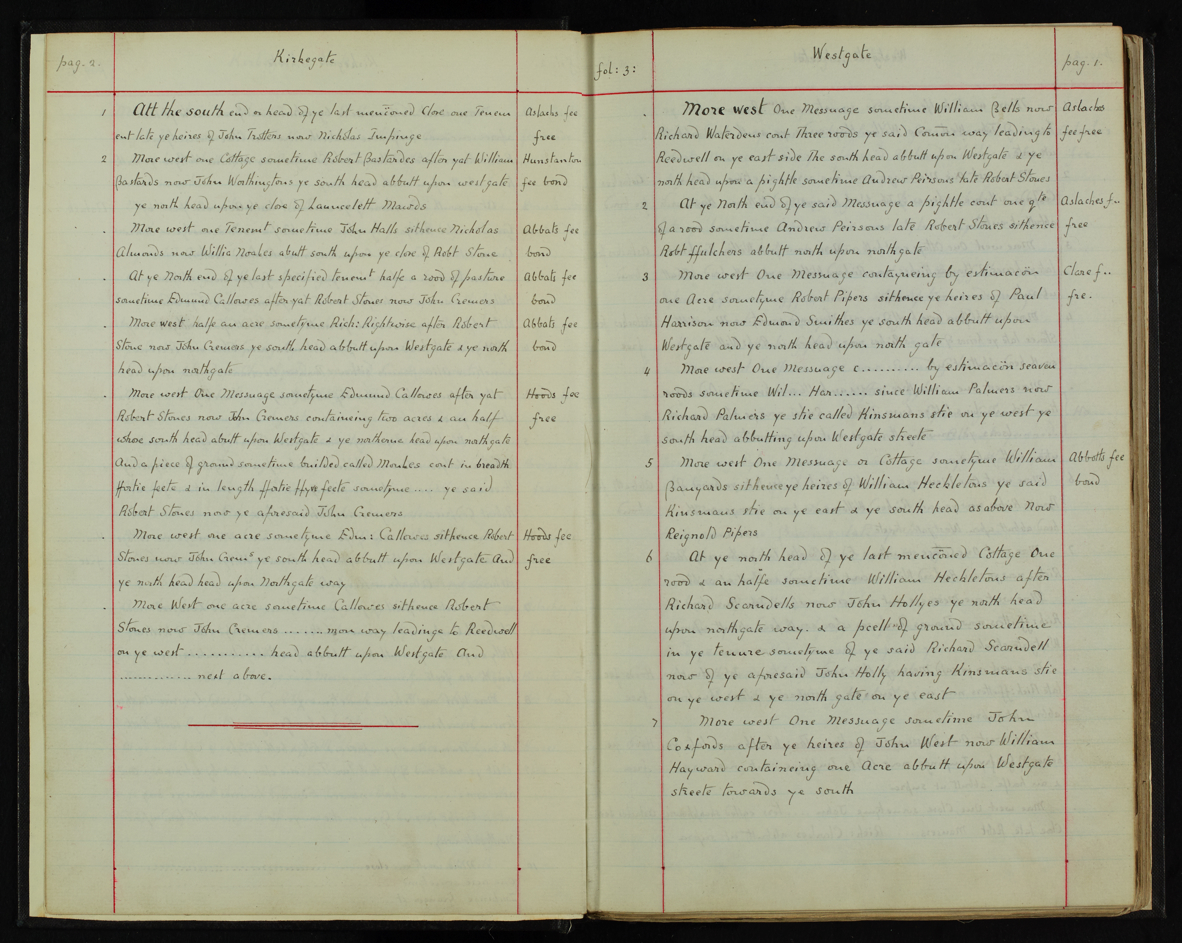 pag. 2.
Kirkegate
1 Att the south end or head of ye last mencioned Close one Tenem Aslachs fee
ent late ye heires of John Trotters now Nicholas Impinge free
2 More west one Cottage sometime Robert Bastardes after yat William Hunstanton
Bastards now John Worthingtons ye south head abbutt upon westgate fee bond
ye north head upon ye close of Launcelett Mawds
. More west one Tenemt sometime John Halls sithence Nicholas Abbats fee
Almonds now Willia Noakes abutt south upon ye close of Robt Stone bond
. At ye North end of ye last specified tenemt halfe a rood of pasture Abbats fee
sometime Edmund Callowes after yat Robert Stones now John Cremers bond
. More west halfe an acre sometyme Rich: Rightwise after Robert Abbats fee
Stone now John Cremers ye south head abbutt upon Westgate & ye north bond
head upon northgate
. More west One Messuage sometyme Edmund Callowes after yat Hoods fee
Robert Stones now John Cremers containeing two acres & an half free
whose south head abutt upon Westgate & ye northorne head upon northgate
And a piece of ground sometime builded called Monkes cont in breadth
ffortie feete & in length ffortie ffyve feete sometyme .... ye said
Robert Stones now ye aforesaid John Cremers
. More west one acre sometyme Edm: Callowes sithence Robert Hoods fee
Stones now John Cremrs ye south head abbutt upon Westgate And free
ye north head head upon Northgate way
. More West one acre sometime Callowes sithence Robert
Stones now John Cremers ........ mon way leadinge to Reedwell
on ye west ............ head abbutt upon Westgate And
............. next above.
fol: 3:
Westgate
pag. 1.
. More west One Messuage sometime William Bells now Aslachs
Richard Waterdens cont Three roods ye said Comōn way leading to fee free
Reedwell on ye east side The south head abbutt upon Westgate & ye
north head upon a pightle sometime Andrew Peirsons late Robert Stones
2 At ye North end of ye said Messuage a pightle cont one qte Aslaches f..
of a rood sometime Andrew Peirsons late Robert Stones sithence free
Robt ffulchers abbutt north upon northgate
3 More west One Messuage contayneing by estimacōn Clare f..
one Acre sometyme Robert Pipers sithence ye heires of Paul fre.
Harrison now Edmond Smithes ye south head abbutt upon
Westgate and ye north head upon north gate
4 More west One Messuage c.......... by estimacōn seaven
roods sometime Wil... Har...... since William Palmers now
Richard Palmers ye stie called Hinsmans stie on ye west ye
south head abbutting upon Westgate streete
5 More west One Messuage or Cottage sometyme William Abbotts fee
Banyards sithence ye heires of William Heckletons ye said bond
Kinsmans stie on ye east & ye south head as above Now
Reignold Pipers
6 At ye north head of ye last mencōned Cottage One
rood & an halfe sometime William Heckletons after
Richard Scarndells now John Hollyes ye north head
upon northgate way. & a pcell of ground sometime
in ye tenure sometyme of ye said Richard Scarndell
now of ye aforesaid John Holly having Kinsmans stie
on ye west & ye north gate on ye east
7 More west One Messuage sometime John
Coxfords after ye heires of John West now William
Hayward containeing one Acre abbutt upon Westgate
streete towards ye south